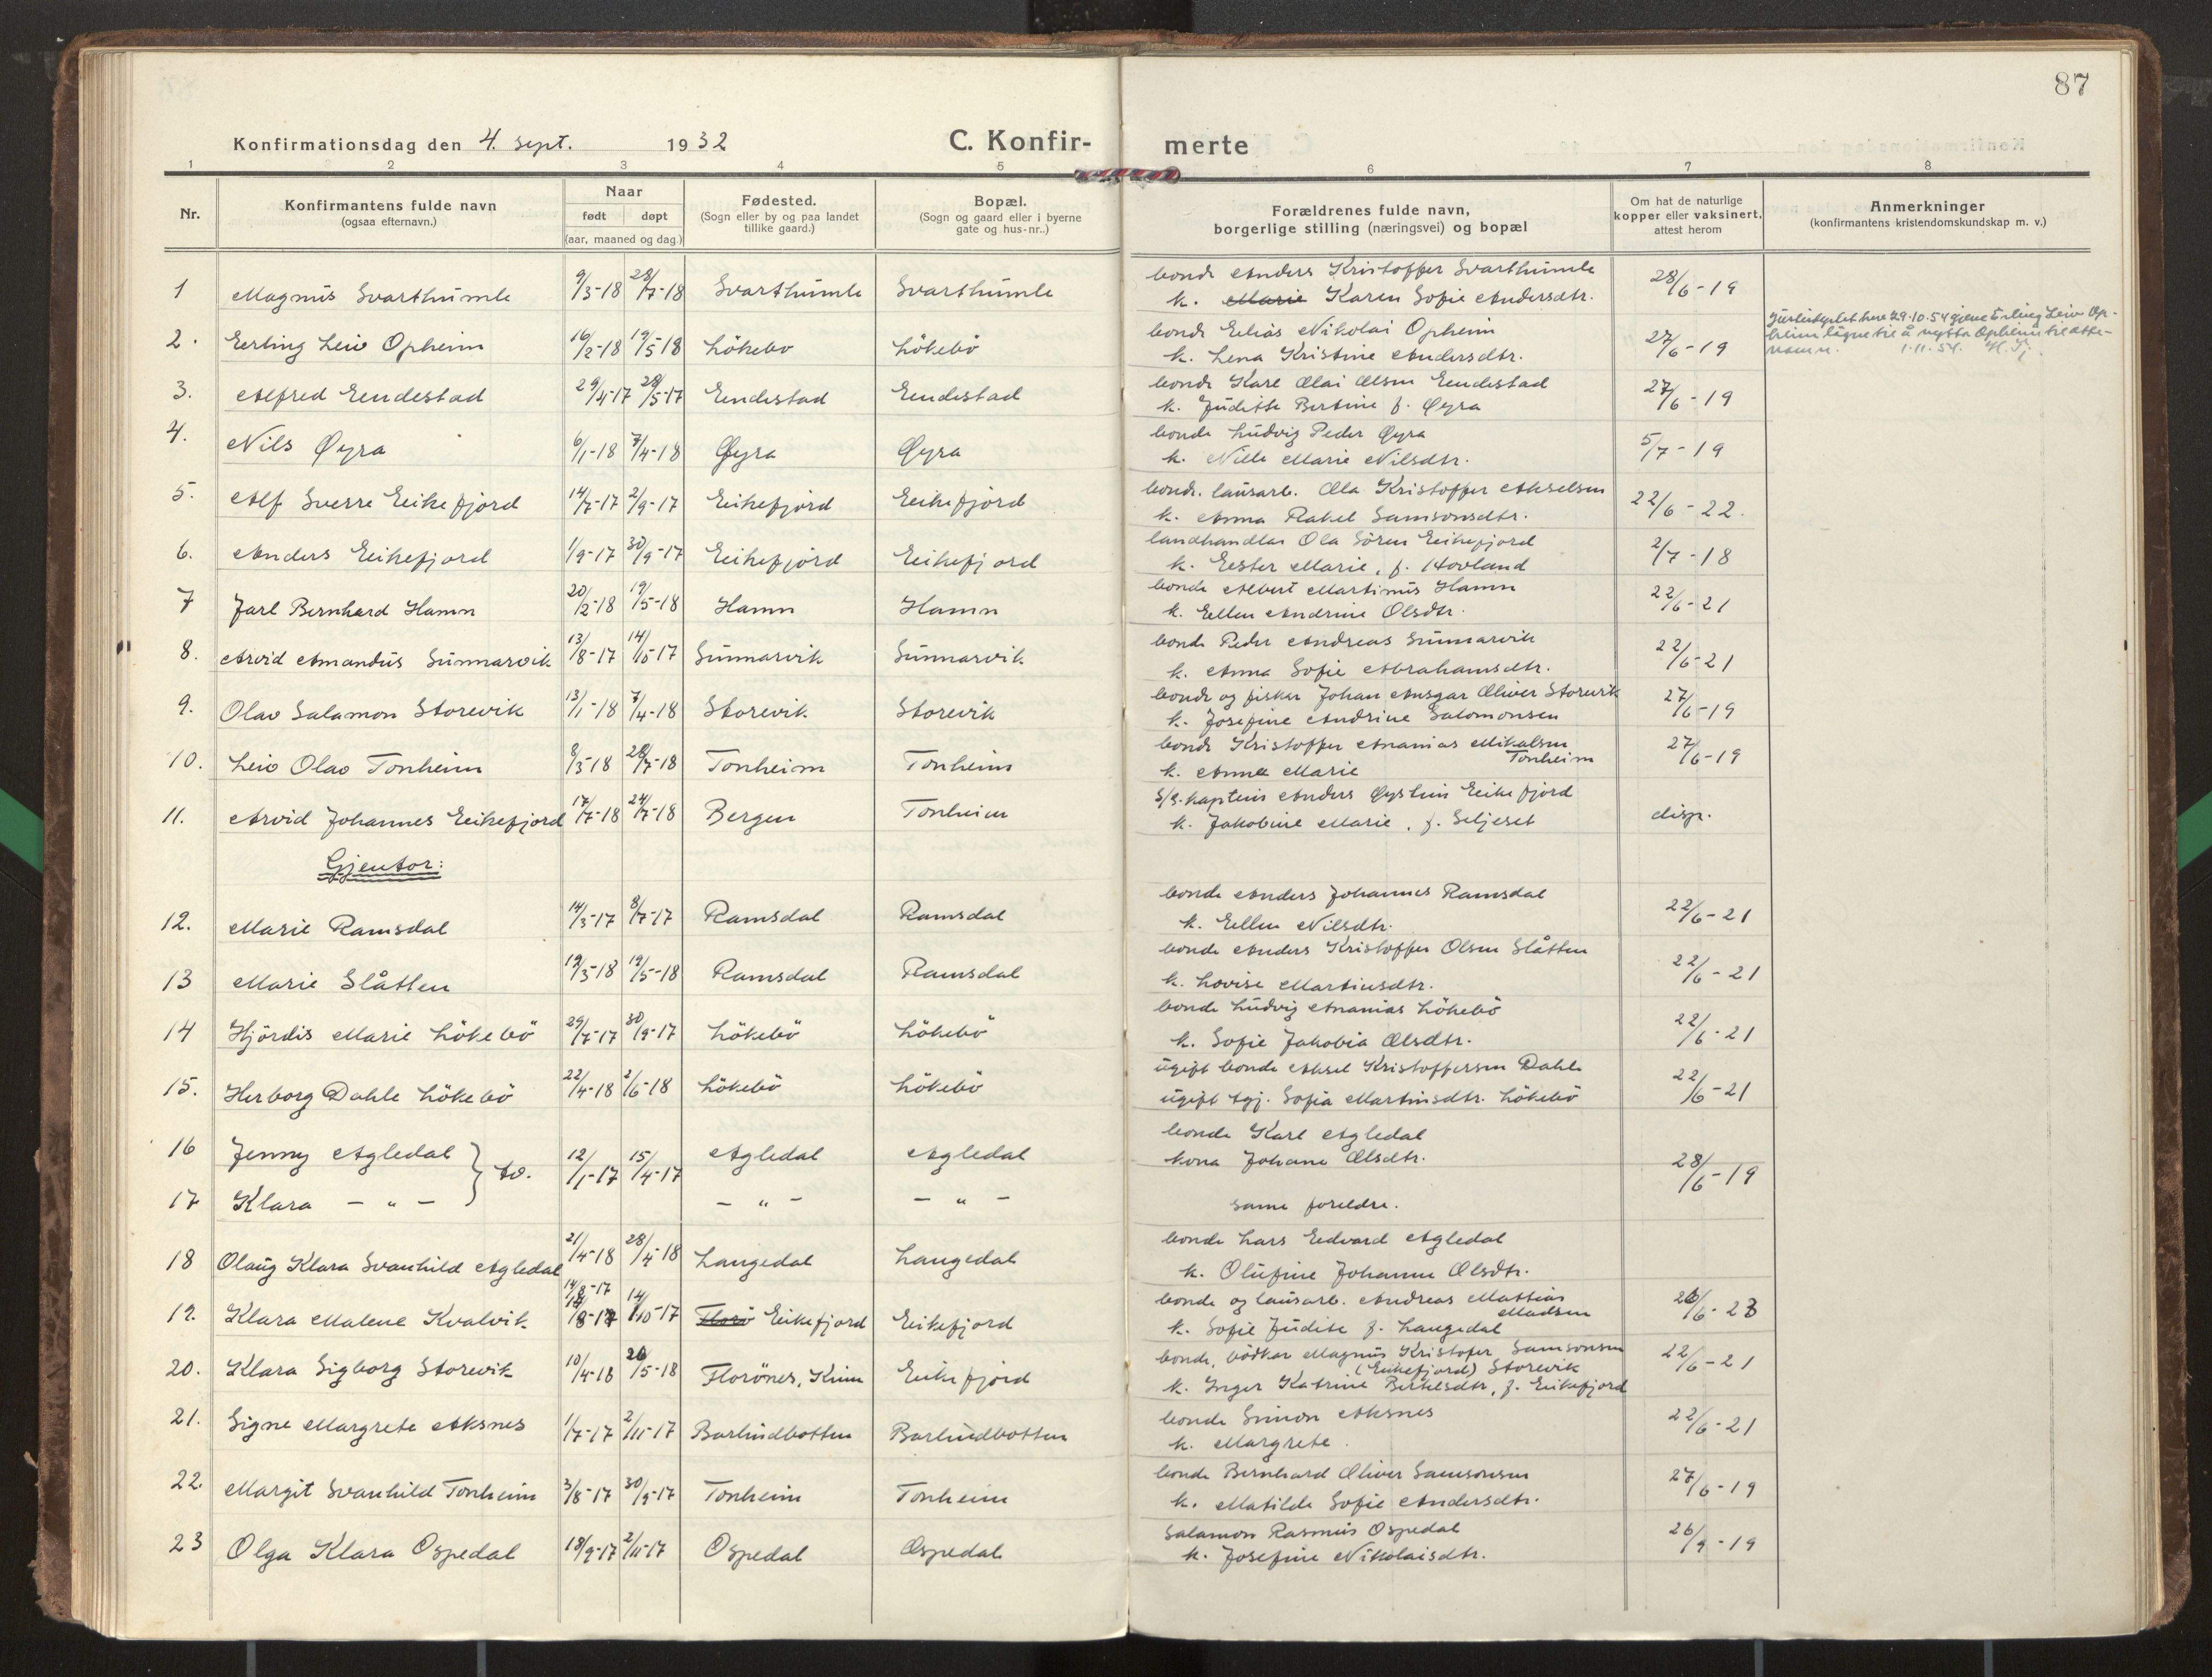 87
Konfirmationsdag den 4. sept. 1932
C. Konfirmerte
1 2 3 4 5 6 7 8
Nr.
Konfirmantens fulde navn
(ogsaa efternavn.)
Naar
født døpt
(aar, maaned og dag.)
Fødested.
(Sogn eller by og paa landet
tillike gaard.)
Bopæl.
(Sogn og gaard eller i byerne
gate og hus-nr..)
Forældrenes fulde navn,
borgerlige stilling (næringsvei) og bopæl
Om hat de naturlige
kopper eller vaksinert,
attest herom
Anmerkninger
(konfirmantens kristendomskundskap m. v.)
1 Magnus Svarthumle 9/3-18 28/7-18 Svarthumle Svarthumle
bonde Anders Kristoffer Svarthumle
k. Marie Karen Sofie Andersdtr.
28/6-19
2. Erling Leiv Opheim 16/2-18 19/5-18 Lökebö Lökebö
bonde Elias Nikolai Opheim
k. Lena Kristine Andersdtr.
27/6-19
29.10.54 Erling Leiv Op-
heim å nytta Opheim til ætte-
namn. 1.11.54.
3. Alfred Endestad 29/4-17 28/5-17 Endestad Endestad
bonde Karl Olai Olsen Endestad
k. Juditte Bertine f. Øyra
27/6-19
4. Nils Øyra 6/1-18 7/4-18 Øyra Øyra
bonde Ludvig Peder Øyra
k. Nille Marie Nilsdtr.
5/7-19
5. Alf Sverre Eikefjord 14/7-17 2/9-17 Eikefjord Eikefjord
bonde. lausarb. Ola Kristoffer Akselsen
k. Anna Rakel Samsonsdtr.
22/6-22.
6. Anders Eikefjord 1/9-17 30/9-17 Eikefjord Eikefjord
landhandlar Ola Sören Eikefjord
k. Ester Marie, f. Hovland
2/7-18
7 Jarl Bernhard Hamn 20/2-18 19/5-18 Hamn Hamn
bonde Albert Martinus Hamn
k. Ellen Andrine Olsdtr.
22/6-21
8. Arvid Amandus Sunnarvik 13/8-17 14/10-17 Sunnarvik Sunnarvik
bonde Peder Andreas Sunnarvik
k. Anna Sofie Abrahamsdtr.
22/6-21
9. Olav Salamon Storevik 13/1-18 7/4-18 Storevik Storevik
bonde og fisker Johan Ansgar Oliver Storevik
k. Josefine Andrine Salomonsen
27/6-19
10. Leiv Olav Tonheim 8/3-18 28/7-18 Tonheim Tonheim
bonde Kristoffer Ananias Mikalsen
Tonheim
k. Anna Marie
27/6-19
11. Arvid Johannes Eikefjord 17/7-18 24/7-18 Bergen Tonheim
S/S. kaptein Anders Øystein Eikefjord
k. Jakobine Marie, f. Seljeset
disp.
Gjentor:
12. Marie Ramsdal 14/3-17 8/7-17 Ramsdal Ramsdal
bonde Anders Johannes Ramsdal
k. Ellen Nilsdtr.
22/6-21
13 Marie Slåtten 19/3-18 19/5-18 Ramsdal Ramsdal
bonde Anders Kristoffer Olsen Slåtten
k. Lovise Martinsdtr.
22/6-21
14 Hjördis Marie Lökebö 29/7-17 30/9-17 Lökebö Lökebö
bonde Ludvig Ananias Lökebö
k. Sofie Jakobia Olsdtr.
22/6-21
15. Herborg Dahle Lökebö 22/4-18 2/6-18 Lökebö Lökebö
ugift bonde Aksel Kristoffersen Dahle
ugift tgj. Sofia Martinsdtr. Lökebö
22/6-21
16 Jenny Agledal } tv. 12/1-17 15/4-17 Agledal Agledal
bonde Karl Agledal
kona Johane Olsdtr.
28/6-19
17 Klara - " - - " - - " -
same foreldre.
18 Olaug Klara Svanhild Agledal 21/4-18 28/4-18 Langedal Langedal
bonde Lars Edvard Agledal
k. Olufine Johanne Olsdtr.
14/8-17
19. Klara Malene Kvalvik 14/8-17 14/10-17 Florö Eikefjord Eikefjord
bonde og lausarb. Andreas Mattias
Madsen
k. Sofie Judite f. Langedal
26/6-23
20. Klara Sigborg Storevik 10/4-18 26/5-18 Florönes, Kinn Eikefjord
bonde, bödker Magnus Kristofer Samsonsen
(Eikefjord) Storevik
k. Inger Katrine Bertelsdtr, f. Eikefjord
22/6-21
21. Signe Margrete Aksnes 1/7-17 2/11-17 Barlindbotten Barlindbotten
bonde Simon Aksnes
k. Margrete.
22/6-21
22. Margit Svanhild Tonheim 3/8-17 30/9-17 Tonheim Tonheim
bonde Bernhard Oliver Samsonsen
k. Matilde Sofie Andersdtr.
27/6-19
23 Olga Klara Ospedal 18/9-17 2/11-17 Ospedal Ospedal
Salamon Rasmus Ospedal
k. Josefine Nikolaisdtr.
26/9-19